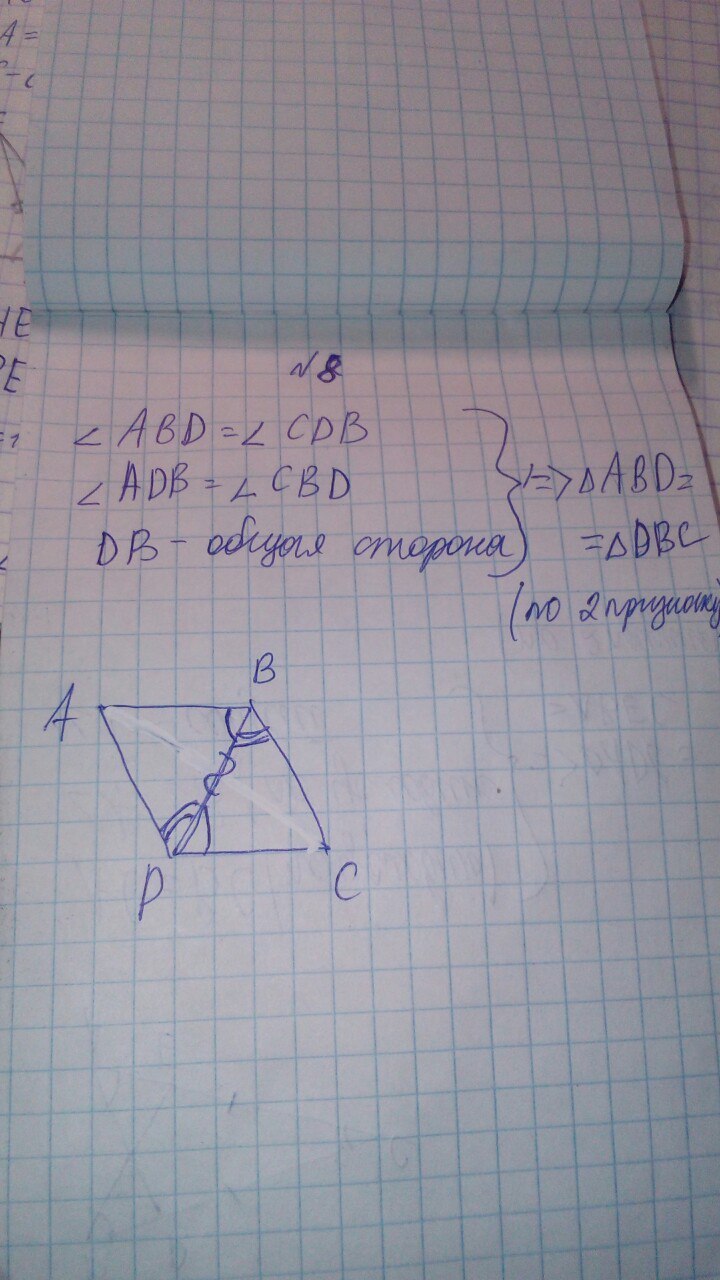 A =
НЕ
РЕ
№8
∠ ABD = ∠ CDB
∠ ADB = ∠ CBD
DB - общая сторона
=> △ABD =
= △DBC
(по 2 признаку)
A
B
D
C